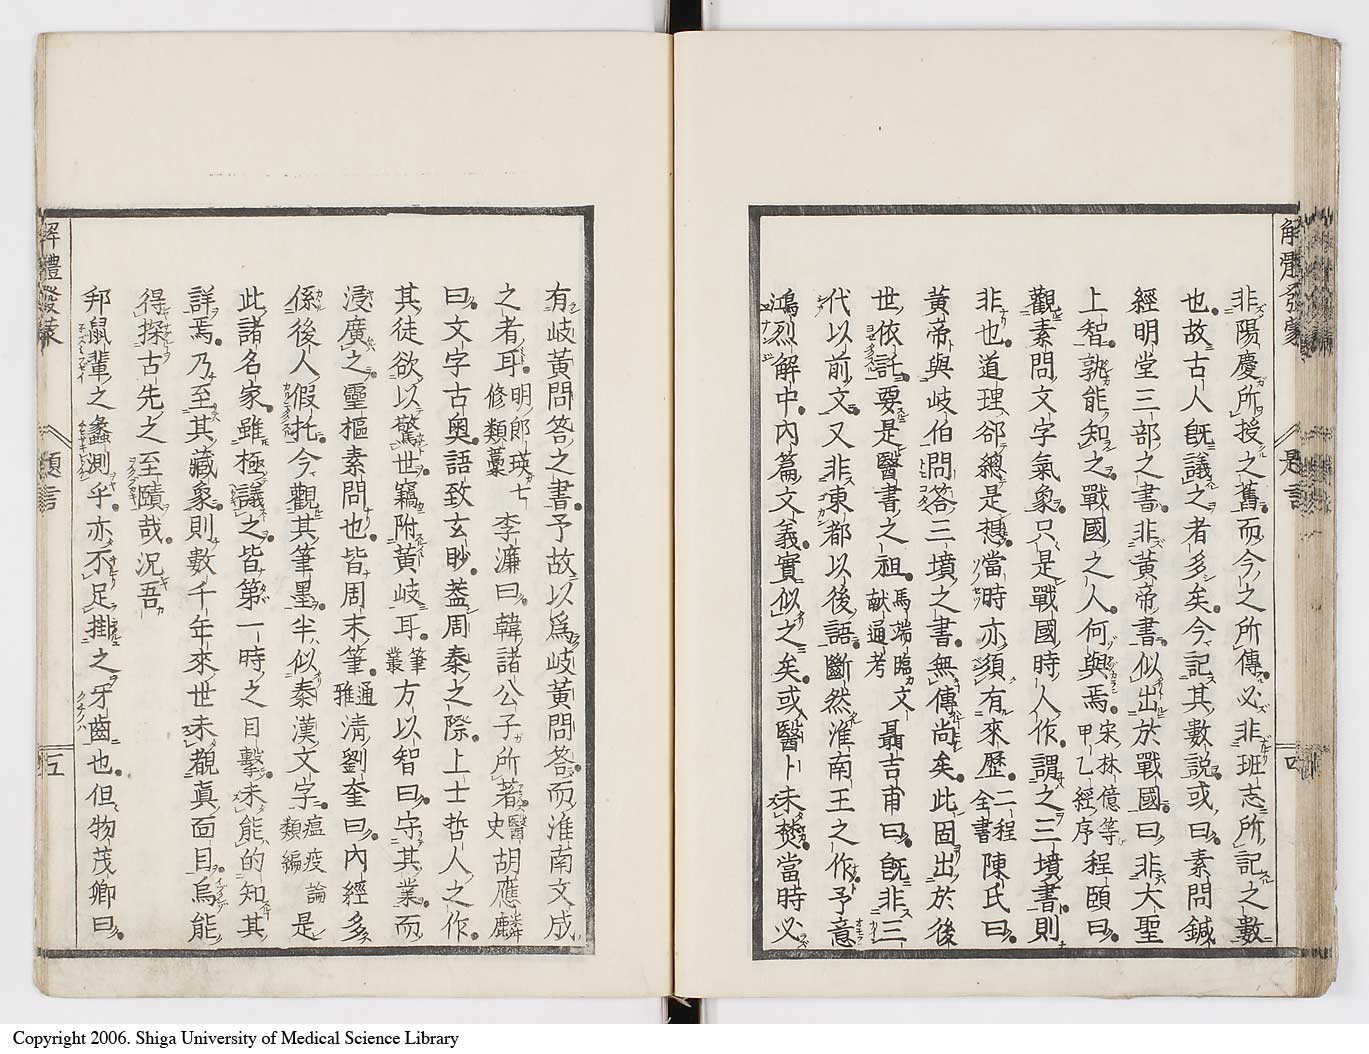 解體發蒙 題言 四
非陽慶所授之舊而今之所傳必非班志所記之數
也故古人既議之者多矣今記其數説或曰素問鍼
經明堂三部之書非黃帝書似出於戰國曰非大聖
上智孰能知之戰國之人何與焉宋林億等甲乙經序程頤曰
觀素問文字氣象只是戰國時人作謂之三墳書則
非也道理却總是想當時亦須有來歷二程全書陳氏曰
黃帝與岐伯問答三墳之書無傳尚矣此固出於後
世依託要是醫書之祖馬端臨文献通考聶吉甫曰既非三
代以前文又非東都以後語斷然淮南王之作予意
鴻烈解中內篇文義實似之矣或醫卜未焚當時必
有岐黃問答之書予故以爲岐黃問答而淮南文成
之者耳明郎瑛七修類藁李濂曰韓諸公子所著醫史胡應麟
曰文字古奧語致玄眇葢周秦之際上士哲人之作
其徒欲以驚世竊附黃岐耳筆叢方以智曰守其業而
浸廣之靈樞素問也皆周末筆通雅淸劉奎曰內經多
係後人假托今觀其筆墨半似秦漢文字瘟疫論類編是
此諸名家雖極議之皆第一時之目擊未能的知其
詳焉乃至其藏象則數千年來世未覩真面目烏能
得探古先之至賾哉況吾
邦鼠輩之蠡測乎亦不足掛之牙齒也但物茂卿曰
解體發蒙 題言 五
Copyright 2006. Shiga University of Medical Science Library